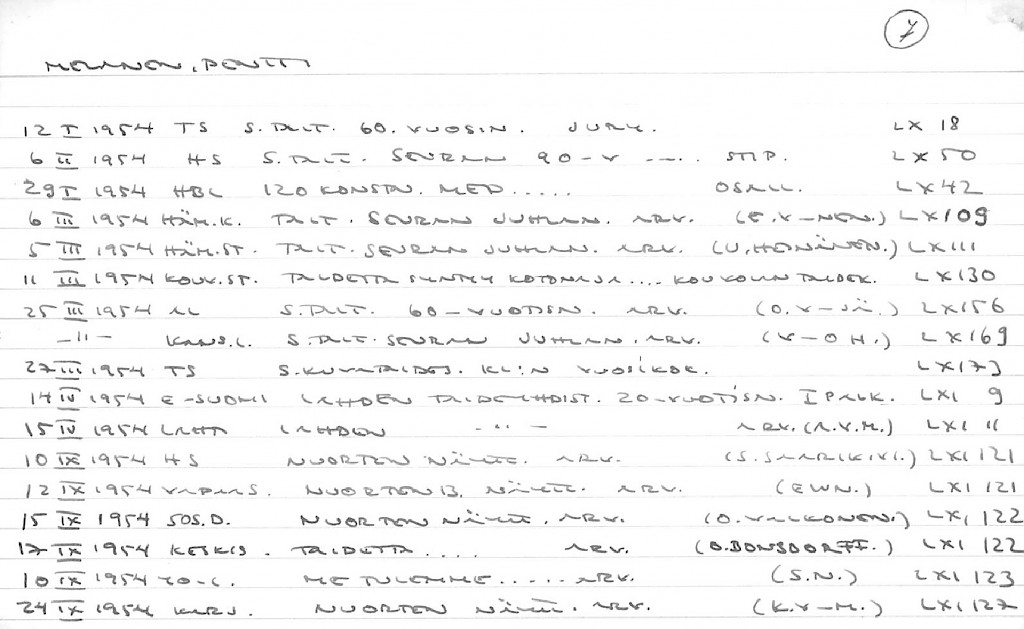 7
MELANEN, PENTTI
12 I 1954 TS S.TAIT. 60. VUOSIN. JURY. LX 18
6 II 1954 HS S.TAIT. SEURAN 90-V ---.. STIP. LX 50
29 I 1954 HBL 120 KONSTN. MED..... OSALL. LX 42
6 III 1954 HÄM.K. TAIT. SEURAN JUHLAN. ARV. (E.V-NEN.) LX 109
5 III 1954 HÄM.ST. TAIT. SEURAN JUHLAN. ARV. (U.HEINÄNEN.) LX 111
11 III 1954 KOUV.ST. TAIDETTA SYNTYY KOTONA JA .... KOUVOLAN TAIDEK. LX 130
25 III 1954 AL S.TAIT. 60-VUOTISN. ARV. (O.V-JÄ.) LX 156
-"- KANS.L. S.TAIT. SEURAN JUHLAN. ARV. (V-O H.) LX 169
27 III 1954 TS S.KUVATAIDES. KL:N VUOSIKOK. LX 173
14 IV 1954 E-SUOMI LAHDEN TAIDEYHDIST. 20-VUOTISN. I PALK. LXI 9
15 IV 1954 LAHTI LAHDEN -"- ARV. (A.V.M.) LXI 11
10 IX 1954 HS NUORTEN NÄYTT. ARV. (S.SAARIKIVI.) LXI 121
12 IX 1954 VAPAA S. NUORTEN 13. NÄYTT. ARV. (EWN.) LXI 121
15 IX 1954 SOS.D. NUORTEN NÄYTT. ARV. (O.VALKONEN.) LXI 122
17 IX 1954 KESKIS. TAIDETTA .... ARV. (B.BONSDORFF.) LXI 122
10 IX 1954 YO-L. ME TULEMME ..... ARV. (S.N.) LXI 123
24 IX 1954 KARJ. NUORTEN NÄYTT. ARV. (K.V-M.) LXI 127